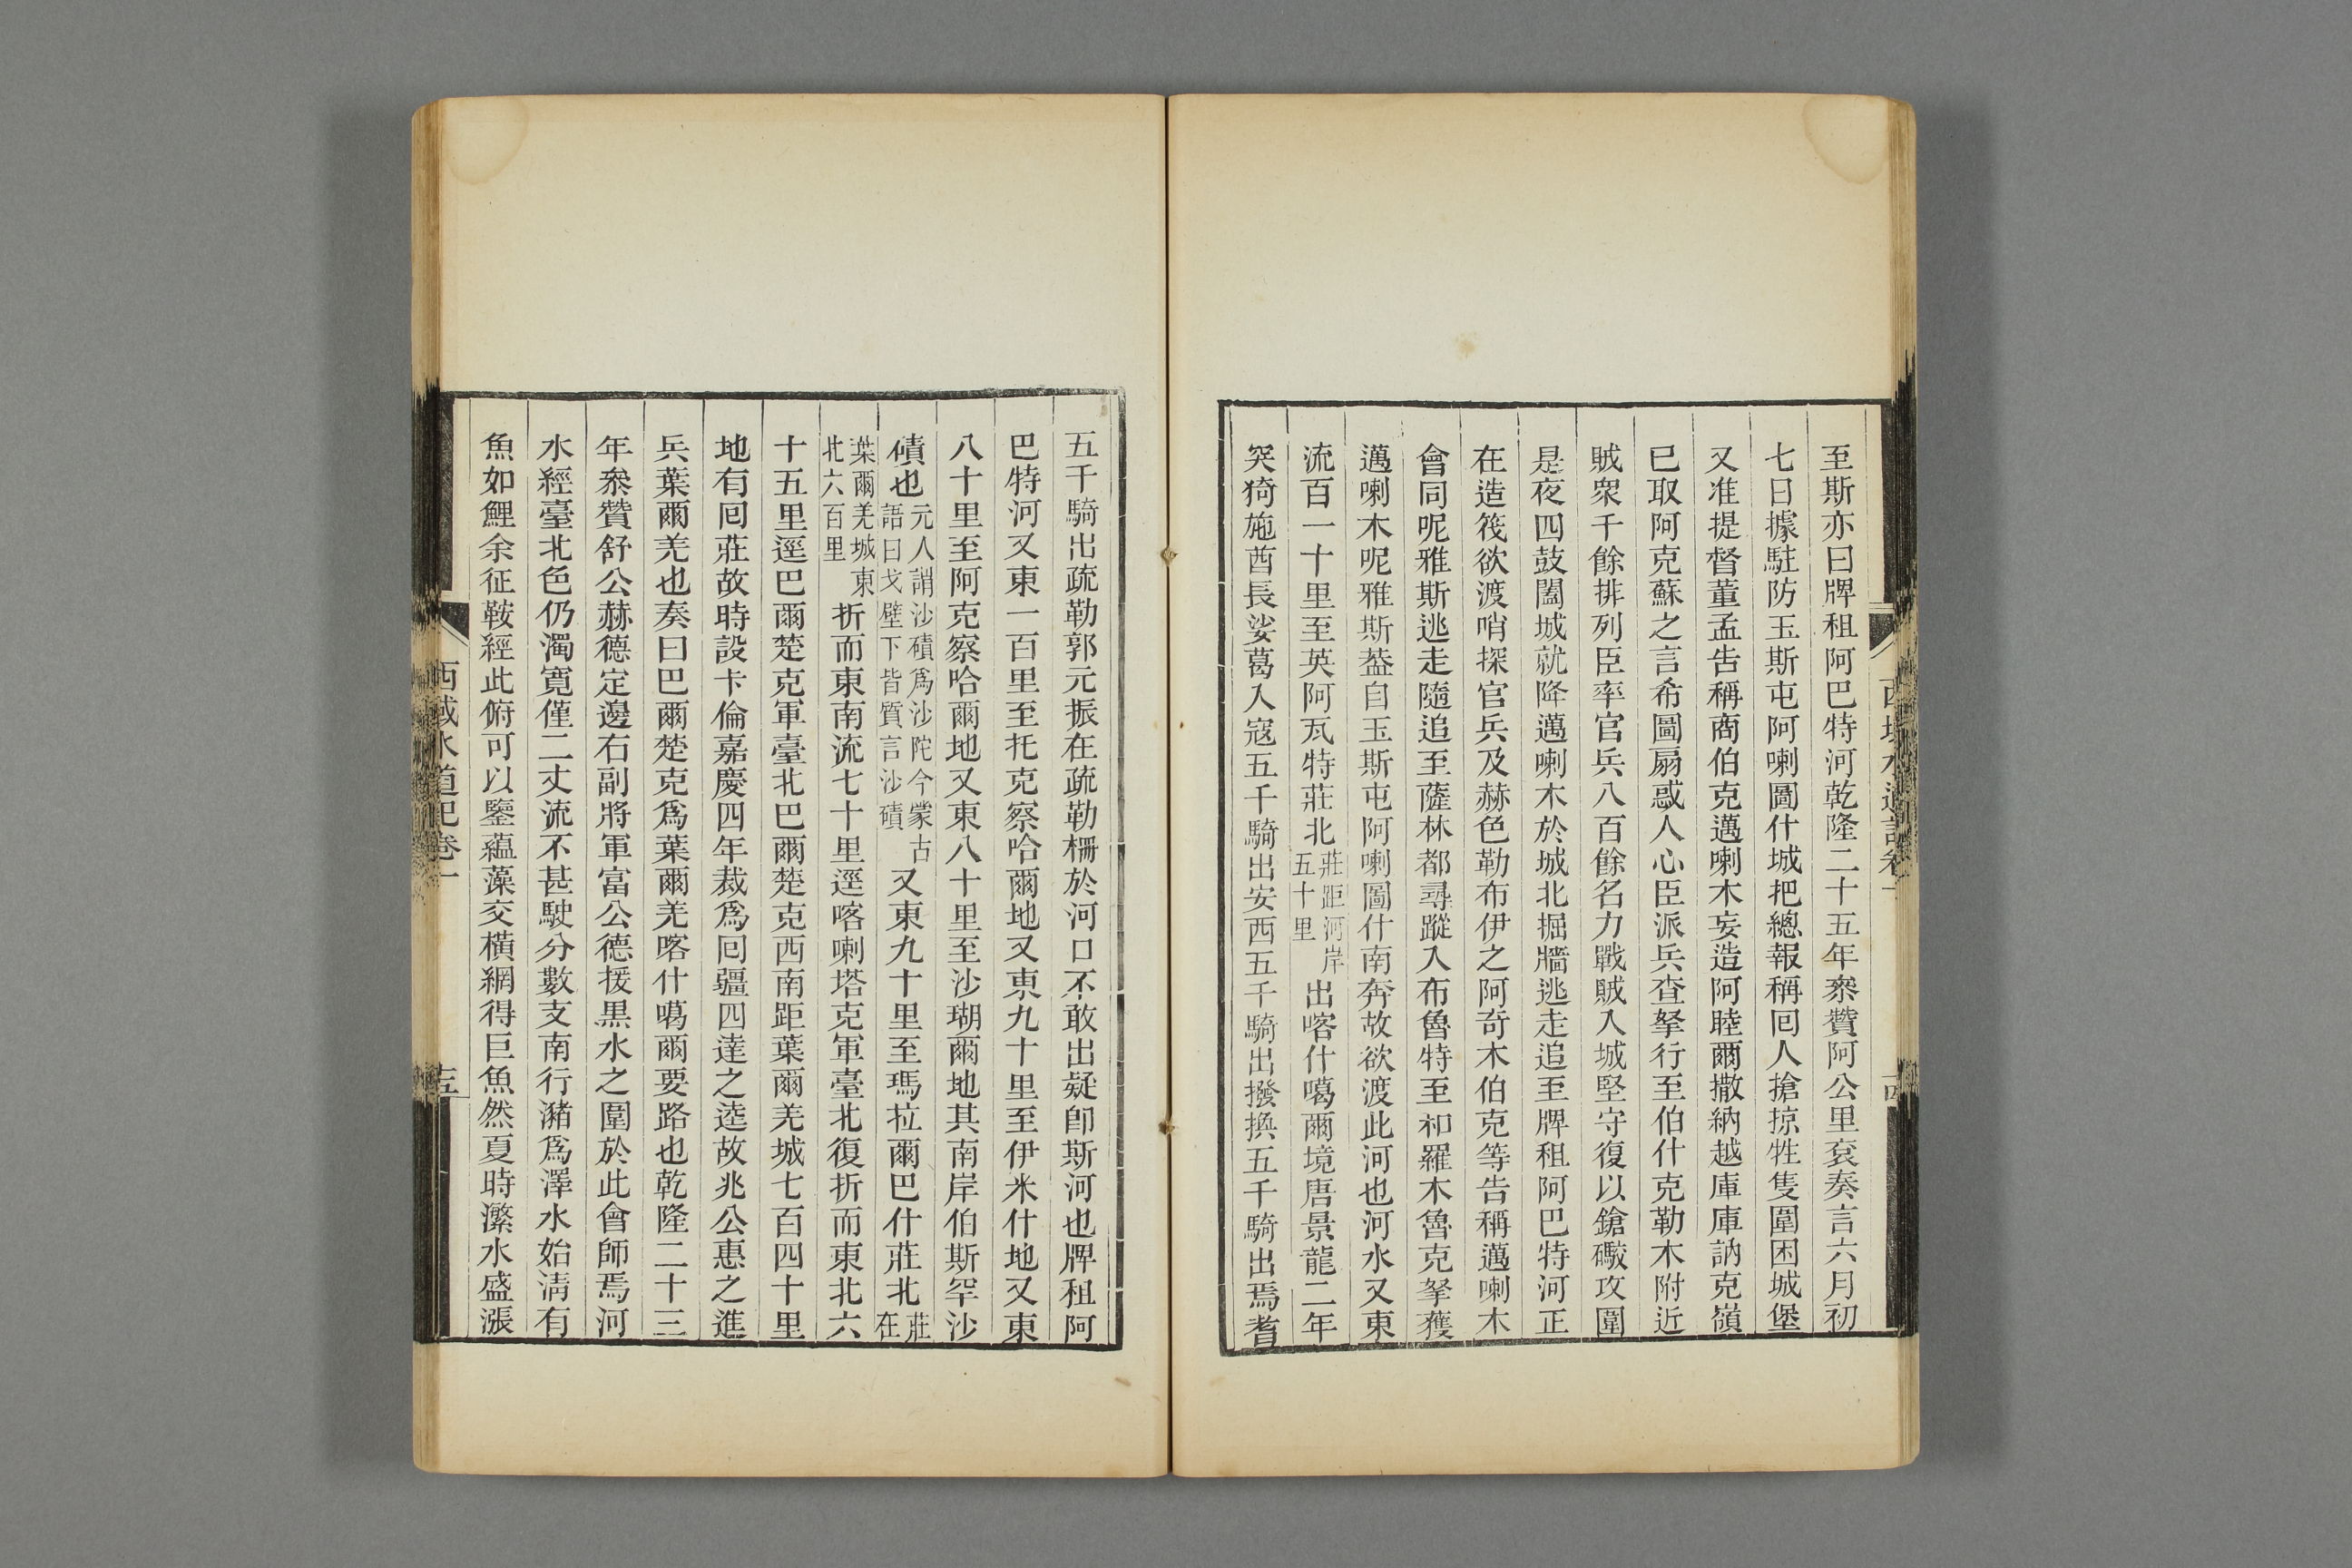 至斯亦曰牌租阿巴特河乾隆二十五年叅贊阿公里袞奏言六月初
七日據駐防玉斯屯阿喇圖什城把總報稱囘人搶掠牲隻圍困城堡
又准提督董孟吿稱商伯克邁喇木妄造阿睦爾撒納越庫庫訥克嶺
已取阿克蘇之言希圖扇惑人心臣派兵查拏行至伯什克勒木附近
賊衆千餘排列臣率官兵八百餘名力戰賊入城堅守復以鎗礮攻圍
是夜四鼓闔城就降邁喇木於城北掘牆逃走追至牌租阿巴特河正
在造筏欲渡哨探官兵及赫色勒布伊之阿奇木伯克等告稱邁喇木
會同呢雅斯逃走隨追至薩林都尋蹤入布魯特至和羅木魯克拏獲
邁喇木呢雅斯葢自玉斯屯阿喇圖什南奔故欲渡此河也河水又東
流百一十里至英阿瓦特莊北莊距河岸五十里出喀什噶爾境唐景龍二年
突猗施酋長娑葛入寇五千騎出安西五千騎出撥換五千騎出焉耆
西域水道記卷一
十四
五千騎出疏勒郭元振在疏勒柵於河口不敢出疑卽斯河也牌租阿
巴特河又東一百里至托克察哈爾地又東九十里至伊米什地又東
八十里至阿克察哈爾地又東八十里至沙瑚爾地其南岸伯斯罕沙
磧也元人謂沙磧爲沙陀今蒙古語曰戈壁下皆質言沙磧又東九十里至瑪拉爾巴什莊北莊在
葉爾羌城東北六百里折而東南流七十里逕喀喇塔克軍臺北復折而東北六
十五里逕巴爾楚克軍臺北巴爾楚克西南距葉爾羌城七百四十里
地有囘莊故時設卡倫嘉慶四年裁爲囘疆四達之逵故兆公惠之進
兵葉爾羌也奏曰巴爾楚克爲葉爾羌喀什噶爾要路也乾隆二十三
年叅贊舒公赫德定邊右副將軍富公德援黑水之圍於此會師焉河
水經臺北色仍濁寬僅二丈流不甚駛分數支南行瀦爲澤水始淸有
魚如鯉余征鞍經此俯可以鑒蘊藻交橫網得巨魚然夏時瀿水盛漲
西域水道記卷一
十五